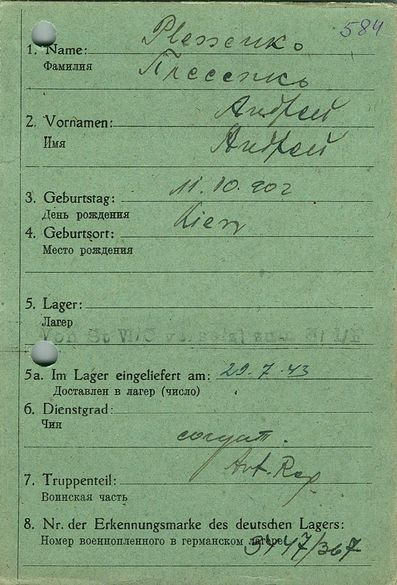 584
1. Name: Plessenko
Фамилия
2. Vornamen: Андрей
Имя Андрей
3. Geburtstag: 11.10.902
День рождения
4. Geburtsort: Kiew
Место рождения
5. Lager:
Лагер
5a. Im Lager eingeliefert am: 29.7.43
Доставлен в лагер (число)
6. Dienstgrad:
Чин
солдат.
7. Truppenteil: Art. Reg
Воинская часть
8. Nr. der Erkennungsmarke des deutschen Lagers:
Номер военнопленного в германском лагере: 3447/367